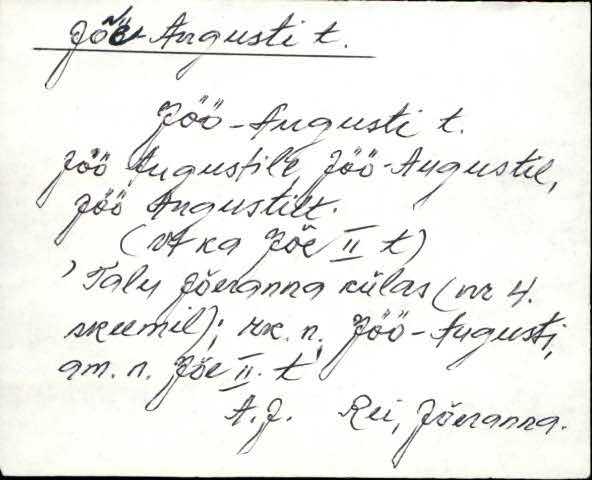 Jõe-Augusti t.
Jöö-Augusti t.
Jöö Augustile, Jöö-Augustil,
Jöö Augustilt.
(vt ka Jõe II t)
'Talu Jõeranna külas (nr 4.
skeemil); rk. n. Jöö-Augusti,
am. n. Jõe II. t'
A. J. Rei, Jõeranna.